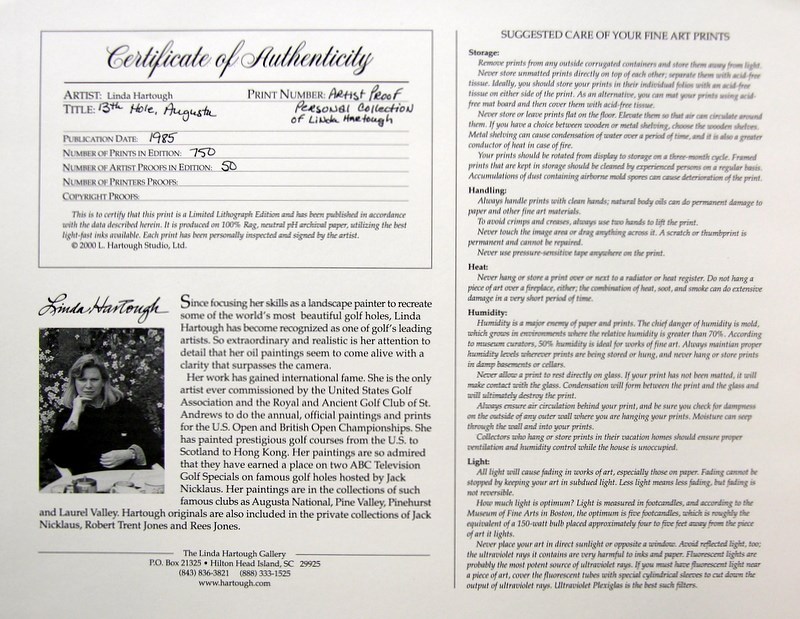 Certificate of Authenticity
ARTIST: Linda Hartough PRINT NUMBER: Artist Proof
TITLE: 13th Hole, Augusta Personal Collection
of Linda Hartough
PUBLICATION DATE: 1985
NUMBER OF PRINTS IN EDITION: 750
NUMBER OF ARTIST PROOFS IN EDITION: 50
NUMBER OF PRINTERS PROOFS:
COPYRIGHT PROOFS:
This is to certify that this print is a Limited Lithograph Edition and has been published in accordance
with the data described herein. It is produced on 100% Rag, neutral pH archival paper, utilizing the best
light-fast inks available. Each print has been personally inspected and signed by the artist.
© 2000 L. Hartough Studio, Ltd.
Linda Hartough
Since focusing her skills as a landscape painter to recreate
some of the world's most beautiful golf holes, Linda
Hartough has become recognized as one of golf's leading
artists. So extraordinary and realistic is her attention to
detail that her oil paintings seem to come alive with a
clarity that surpasses the camera.
Her work has gained international fame. She is the only
artist ever commissioned by the United States Golf
Association and the Royal and Ancient Golf Club of St.
Andrews to do the annual, official paintings and prints
for the U.S. Open and British Open Championships. She
has painted prestigious golf courses from the U.S. to
Scotland to Hong Kong. Her paintings are so admired
that they have earned a place on two ABC Television
Golf Specials on famous golf holes hosted by Jack
Nicklaus. Her paintings are in the collections of such
famous clubs as Augusta National, Pine Valley, Pinehurst
and Laurel Valley. Hartough originals are also included in the private collections of Jack
Nicklaus, Robert Trent Jones and Rees Jones.
The Linda Hartough Gallery
P.O. Box 21325 • Hilton Head Island, SC 29925
(843) 836-3821 (888) 333-1525
www.hartough.com
SUGGESTED CARE OF YOUR FINE ART PRINTS
Storage:
Remove prints from any outside corrugated containers and store them away from light.
Never store unmatted prints directly on top of each other; separate them with acid-free
tissue. Ideally, you should store your prints in their individual folios with an acid-free
tissue on either side of the print. As an alternative, you can mat your prints using acid-
free mat board and then cover them with acid-free tissue.
Never store or leave prints flat on the floor. Elevate them so that air can circulate around
them. If you have a choice between wooden or metal shelving, choose the wooden shelves.
Metal shelving can cause condensation of water over a period of time, and it is also a greater
conductor of heat in case of fire.
Your prints should be rotated from display to storage on a three-month cycle. Framed
prints that are kept in storage should be cleaned by experienced persons on a regular basis.
Accumulations of dust containing airborne mold spores can cause deterioration of the print.
Handling:
Always handle prints with clean hands; natural body oils can do permanent damage to
paper and other fine art materials.
To avoid crimps and creases, always use two hands to lift the print.
Never touch the image area or drag anything across it. A scratch or thumbprint is
permanent and cannot be repaired.
Never use pressure-sensitive tape anywhere on the print.
Heat:
Never hang or store a print over or next to a radiator or heat register. Do not hang a
piece of art over a fireplace, either; the combination of heat, soot, and smoke can do extensive
damage in a very short period of time.
Humidity:
Humidity is a major enemy of paper and prints. The chief danger of humidity is mold,
which grows in environments where the relative humidity is greater than 70%. According
to museum curators, 50% humidity is ideal for works of fine art. Always maintian proper
humidity levels wherever prints are being stored or hung, and never hang or store prints
in damp basements or cellars.
Never allow a print to rest directly on glass. If your print has not been matted, it will
make contact with the glass. Condensation will form between the print and the glass and
will ultimately destroy the print.
Always ensure air circulation behind your print, and be sure you check for dampness
on the outside of any outer wall where you are hanging your prints. Moisture can seep
through the wall and into your prints.
Collectors who hang or store prints in their vacation homes should ensure proper
ventilation and humidity control while the house is unoccupied.
Light:
All light will cause fading in works of art, especially those on paper. Fading cannot be
stopped by keeping your art in subdued light. Less light means less fading, but fading
is not reversible.
How much light is optimum? Light is measured in footcandles, and according to the
Museum of Fine Arts in Boston, the optimum is five footcandles, which is roughly the
equivalent of a 150-watt bulb placed approximately four to five feet away from the piece
of art it lights.
Never place your art in direct sunlight or opposite a window. Avoid reflected light, too;
the ultraviolet rays it contains are very harmful to inks and paper. Fluorescent lights are
probably the most potent source of ultraviolet rays. If you must have fluorescent light near
a piece of art, cover the fluorescent tubes with special cylindrical sleeves to cut down the
output of ultraviolet rays. Ultraviolet Plexiglas is the best such filters.